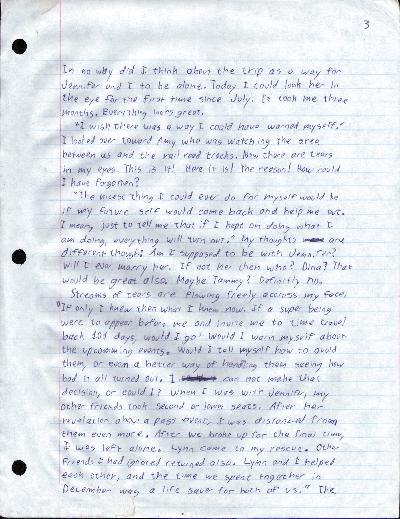 3
In no why did I think about the trip as a way for
Jennifer and I to be alone. Today I could look her in
the eye for the first time since July. It took me three
months. Everything looks great.
"I wish there was a way I could have warned myself."
I looked over toward Amy who was watching the area
between us and the rail road tracks. Now there are tears
in my eyes. This is it! Here it is! The reason! How could
I have forgotten?
"The nicest thing I could ever do for myself would be
if my future self would come back and help me out.
I mean, just to tell me that if I kept on doing what I
am doing, everything will turn out." My thoughts are
different though: Am I supposed to be with Jennifer?
Will I ever marry her. If not her then who? Dina? That
would be great also. Maybe Tammy? Definitly no.
Streams of tears are flowing freely accross my face.
"If only I knew then what I know now. If a super being
were to appear before me and invite me to time travel
back 101 days, would I go? Would I warn myself about
the upcomming events. Would I tell myself how to avoid
them, or even a better way of handling them seeing how
bad it all turned out. I can not make that
decision, or could I? When I was with Jennifer, my
other friends took second or lower seats. After her
revelation about a past event, I was distanced from
them even more. After we broke up for the final time,
I was left alone. Lynn came to my rescue. Other
friends I had ignored returned also. Lynn and I helped
each other, and the time we spent together in
December was a life saver for both of us." The